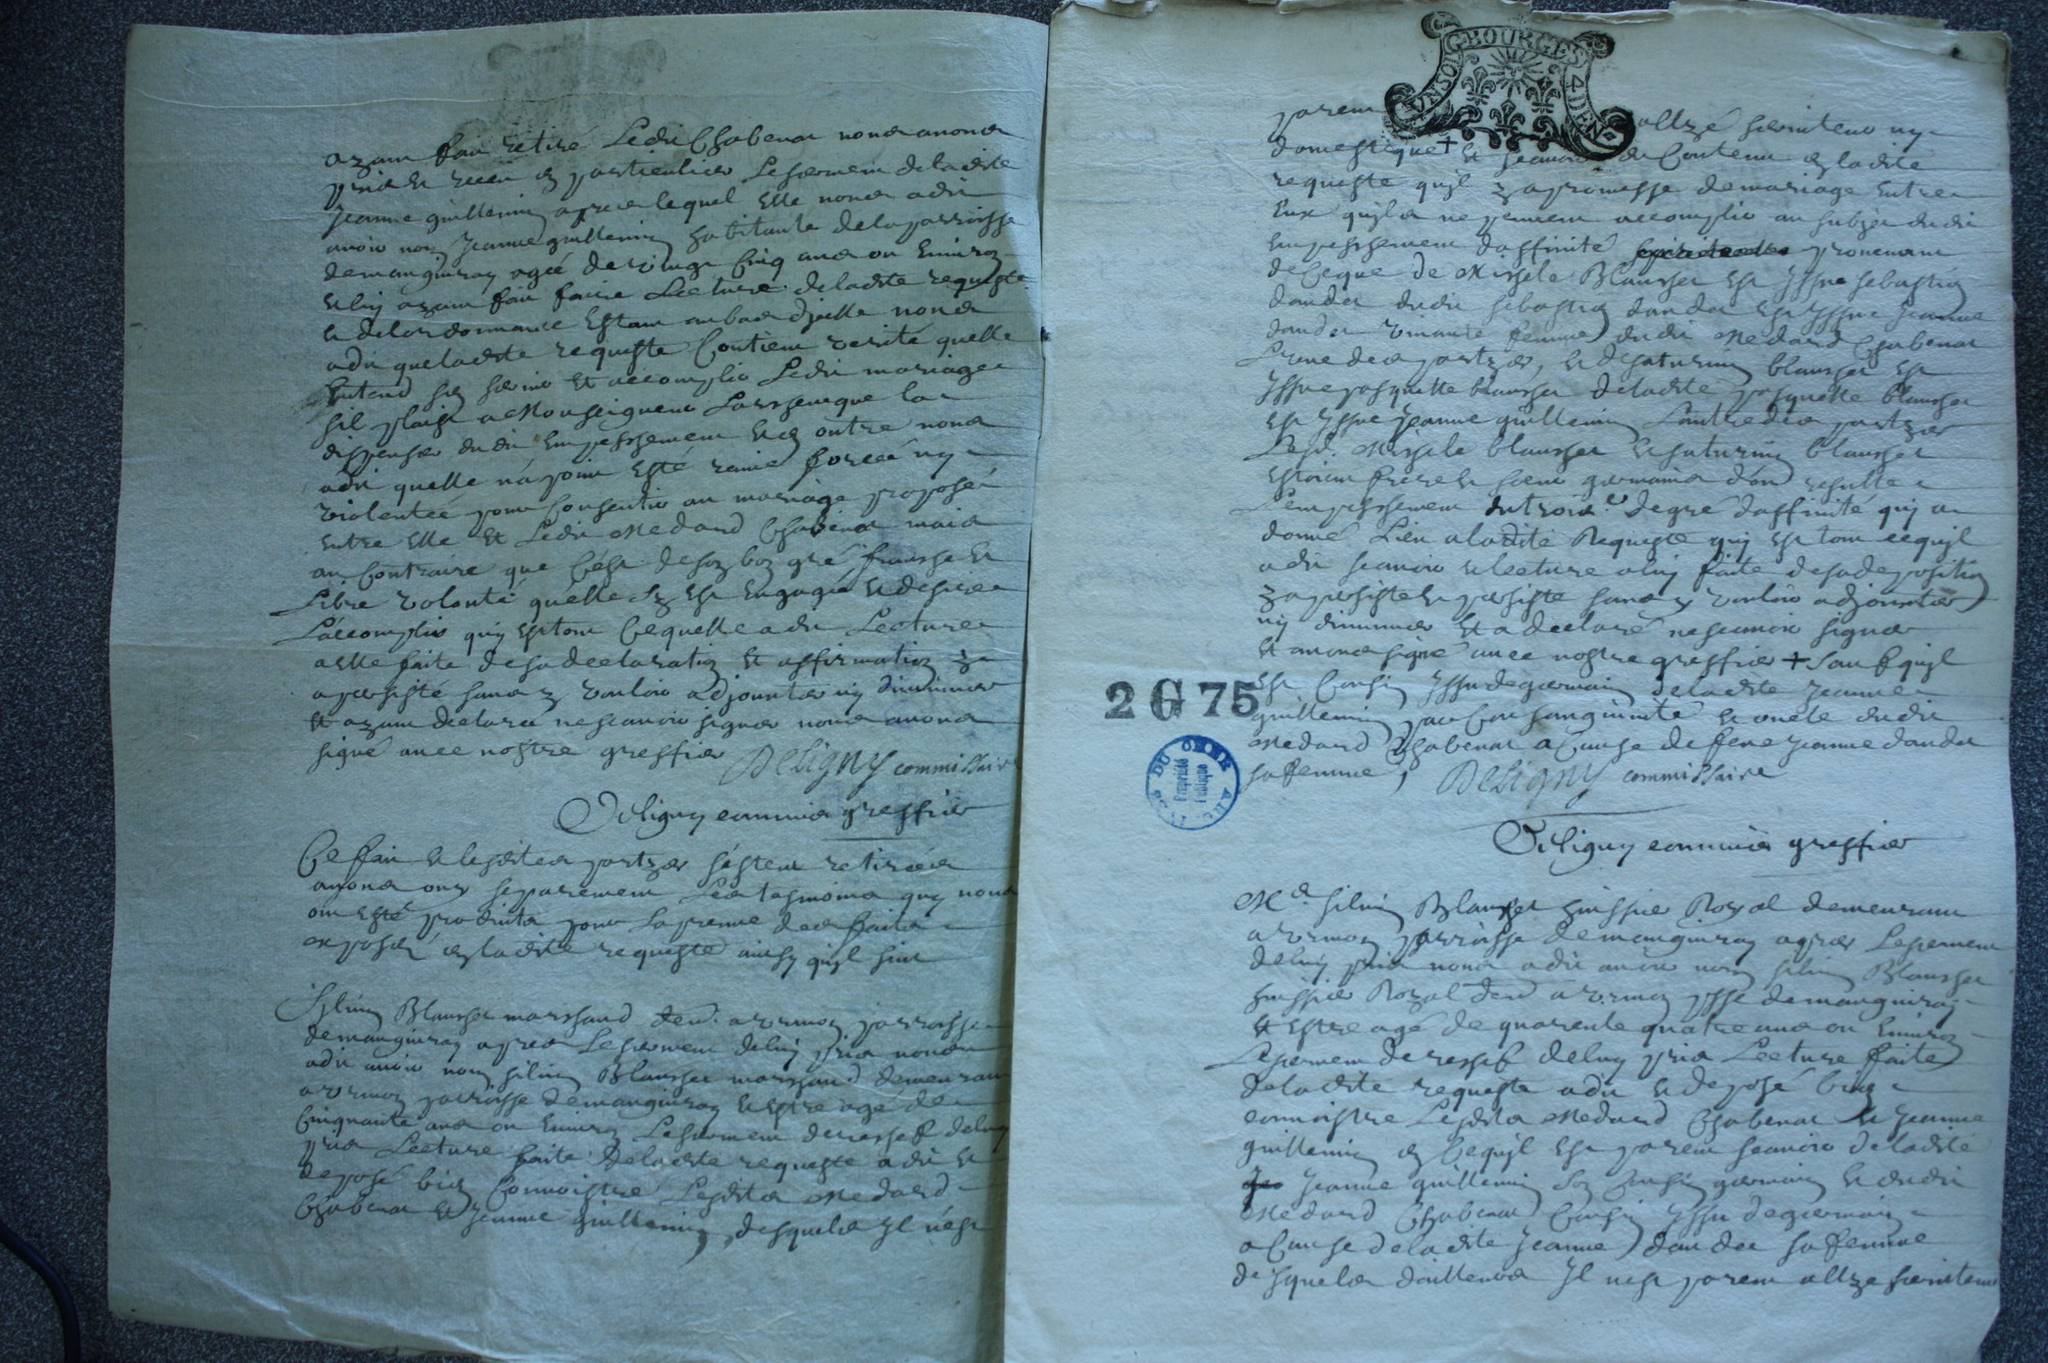 ayant fait retiré Ledit Chabenat nous auons
pris et receu en particulier Le serment de ladite
Jeanne guillemin apres lequel Elle nous a dit
auoir nom Jeanne guillemin habitante de la parroisse
de mauguiray agée de vingt cinq ans ou Enuiron
et luy ayant fait faire Lecture de ladite requeste
et de lordonnance Estant au bas d'jcelle nous
a dit que ladite requeste Contient verité quelle
Entend sen seruir et accomplir Ledit mariage
sil plaist a Monseigneur Larcheuesque la
dispenser dudit Empeschement et en outre nous
a dit quelle n'a point esté rauie forcée ny
violentée pour Consentir au mariage proposé
Entre Elle et Ledit Medard Chabenat mais
au Contraire que C'est de son bon gré franche et
Libre volonté quelle sy est Engagée et desire
L'accomplir quy est tout Ce quelle a dit Lecture
a elle faite de sa declaration et affirmation y
a persisté sans y vouloir adjouster ny diminuer
et ayant declaré ne scauoir signer nous auons
signé auec nostre greffier Deligny commissaire
Deligny commis greffier
Ce fait et lesdites partyes s'estant retirées
auons ouy separement Les tesmoins quy nous
ont esté produits pour La preuue des faits
exposés en ladite requeste ainsy quil suit
Siluin Blanchet marchand dem.t a vrmon parroisse
de mauguiray apres Le serment de luy pris nous
a dit auoir nom siluin Blanchet marchand demeurant
a vrmon parroisse de mauguiray et estre agé de
Cinquante ans ou Enuiron Le serment derechef de luy
pris Lecture faite de ladite requeste a dit et
deposé bien Connoistre Lesdits Medard
Chabenat et Jeanne guillemin, desquels Jl n'est
GBOURGES
VNSOL
4 DEN.
parent allyé seruiteur ny
domestique + et scauoir du Contenu en ladite
requeste quil y a promesse de mariage entre
Eux quils ne peuuent accomplir au subjet dudit
Empeschement d'affinité prouenant
de Ceque de Michele Blanchet est yssue sebastien
dandet dudit sebastien dandet est yssue Jeanne
dandet viuante femme dudit Medard Chabenat
L'une des partyes, et de saturnin blanchet est
yssue pasquette blanchet de ladite pasquette blanchet
est yssue Jeanne guillemin L'autre des partyes
Lesd. Michele blanchet et saturnin blanchet
estoient frere et soeur germains d'ou resulte
L'empeschement du trois.e degré d'affinité qui a
donné Lieu a ladite Requeste quy est tout ce quil
a dit scauoir et lecture a luy faite de sa deposition
y a persisté et persiste sans y vouloir adjouster
ny diminuer et a declaré ne scauoir signer
et auons signé auec nostre greffier + sauf quil
est Cousin yssu de germain de ladite Jeanne
guillemin par Consanguinité et oncle dudit
Medard Chabenat a Cause de feue Jeanne dandet
sa femme, Deligny commissaire
2 G 75
DU CHER
ARC
Propriété
Publique
Deligny commis greffier
M.e siluin Blanchet huissier Royal demeurant
a vrmon parroisse de mauguiray apres Le serment
de luy pris nous a dit auoir nom siluin Blanchet
huissier Royal dem.t a vrmon p.sse de mauguiray
et estre agé de quarente quatre ans ou Enuiron
Le serment derechef de luy pris Lecture faite
de ladite requeste a dit et deposé bien
connoistre Lesdits Medard Chabenat et Jeanne
guillemin en Ce quil est parent scauoir de ladite
Jeanne guillemin son Cousin germain et dudit
Medard Chabenat Cousin yssu de germain
a Cause de ladite Jeanne dandet sa femme
desquels d'ailleurs Jl n'est parent allyé seruiteur